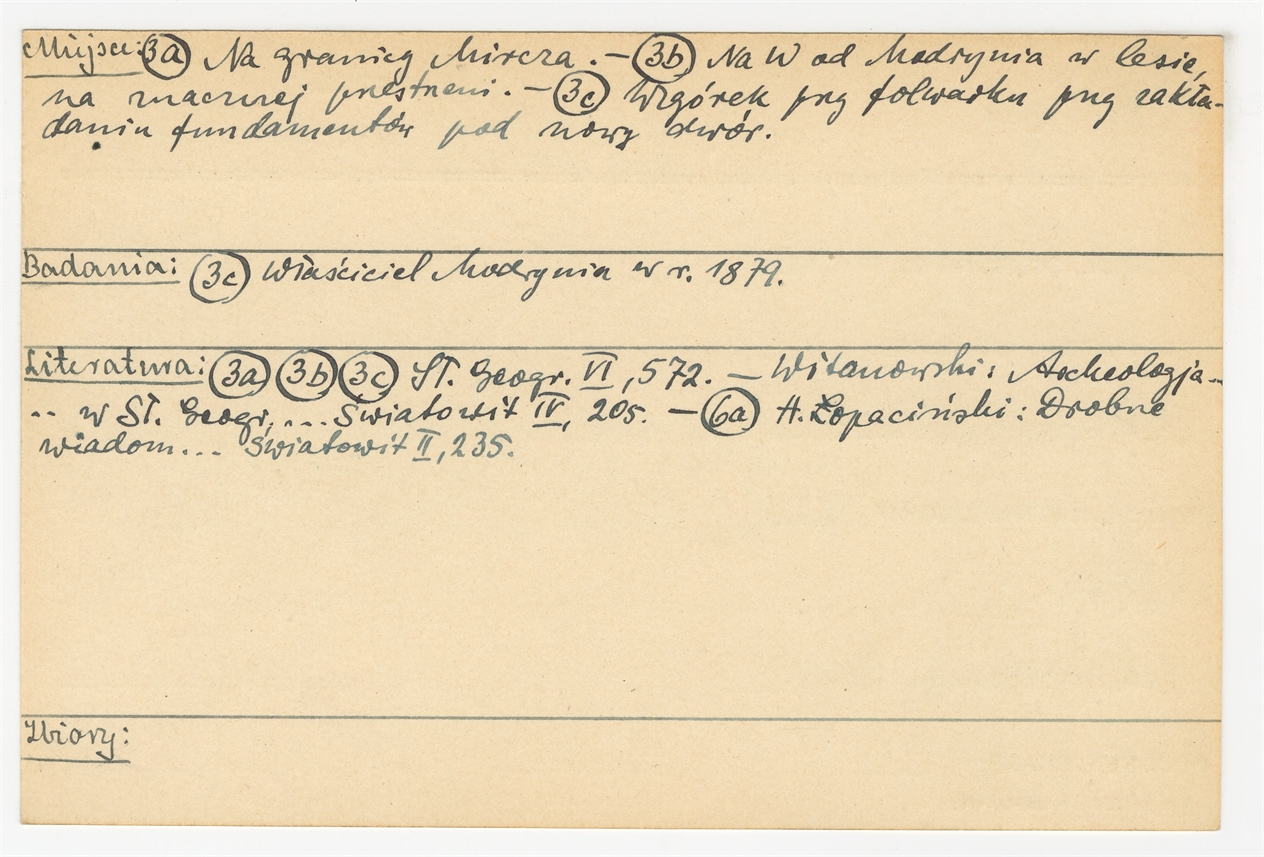 Miejsce: 3a Na granicy Mircza. – 3b Na W od Modrynia w lesie,
na znacznej przestrzeni. – 3c Wzgórek przy folwarku przy zakła-
daniu fundamentów pod nowy dwór.
Badania: 3c Właściciel Modrynia w r. 1879.
Literatura: 3a 3b 3c Sł. Geogr. VI, 572. – Witanowski: Archeologja...
.. w Sł. Geogr. ... Światowit IV, 205. – 6a H. Łopaciński: Drobne
wiadom... Światowit II, 235.
Zbiory: